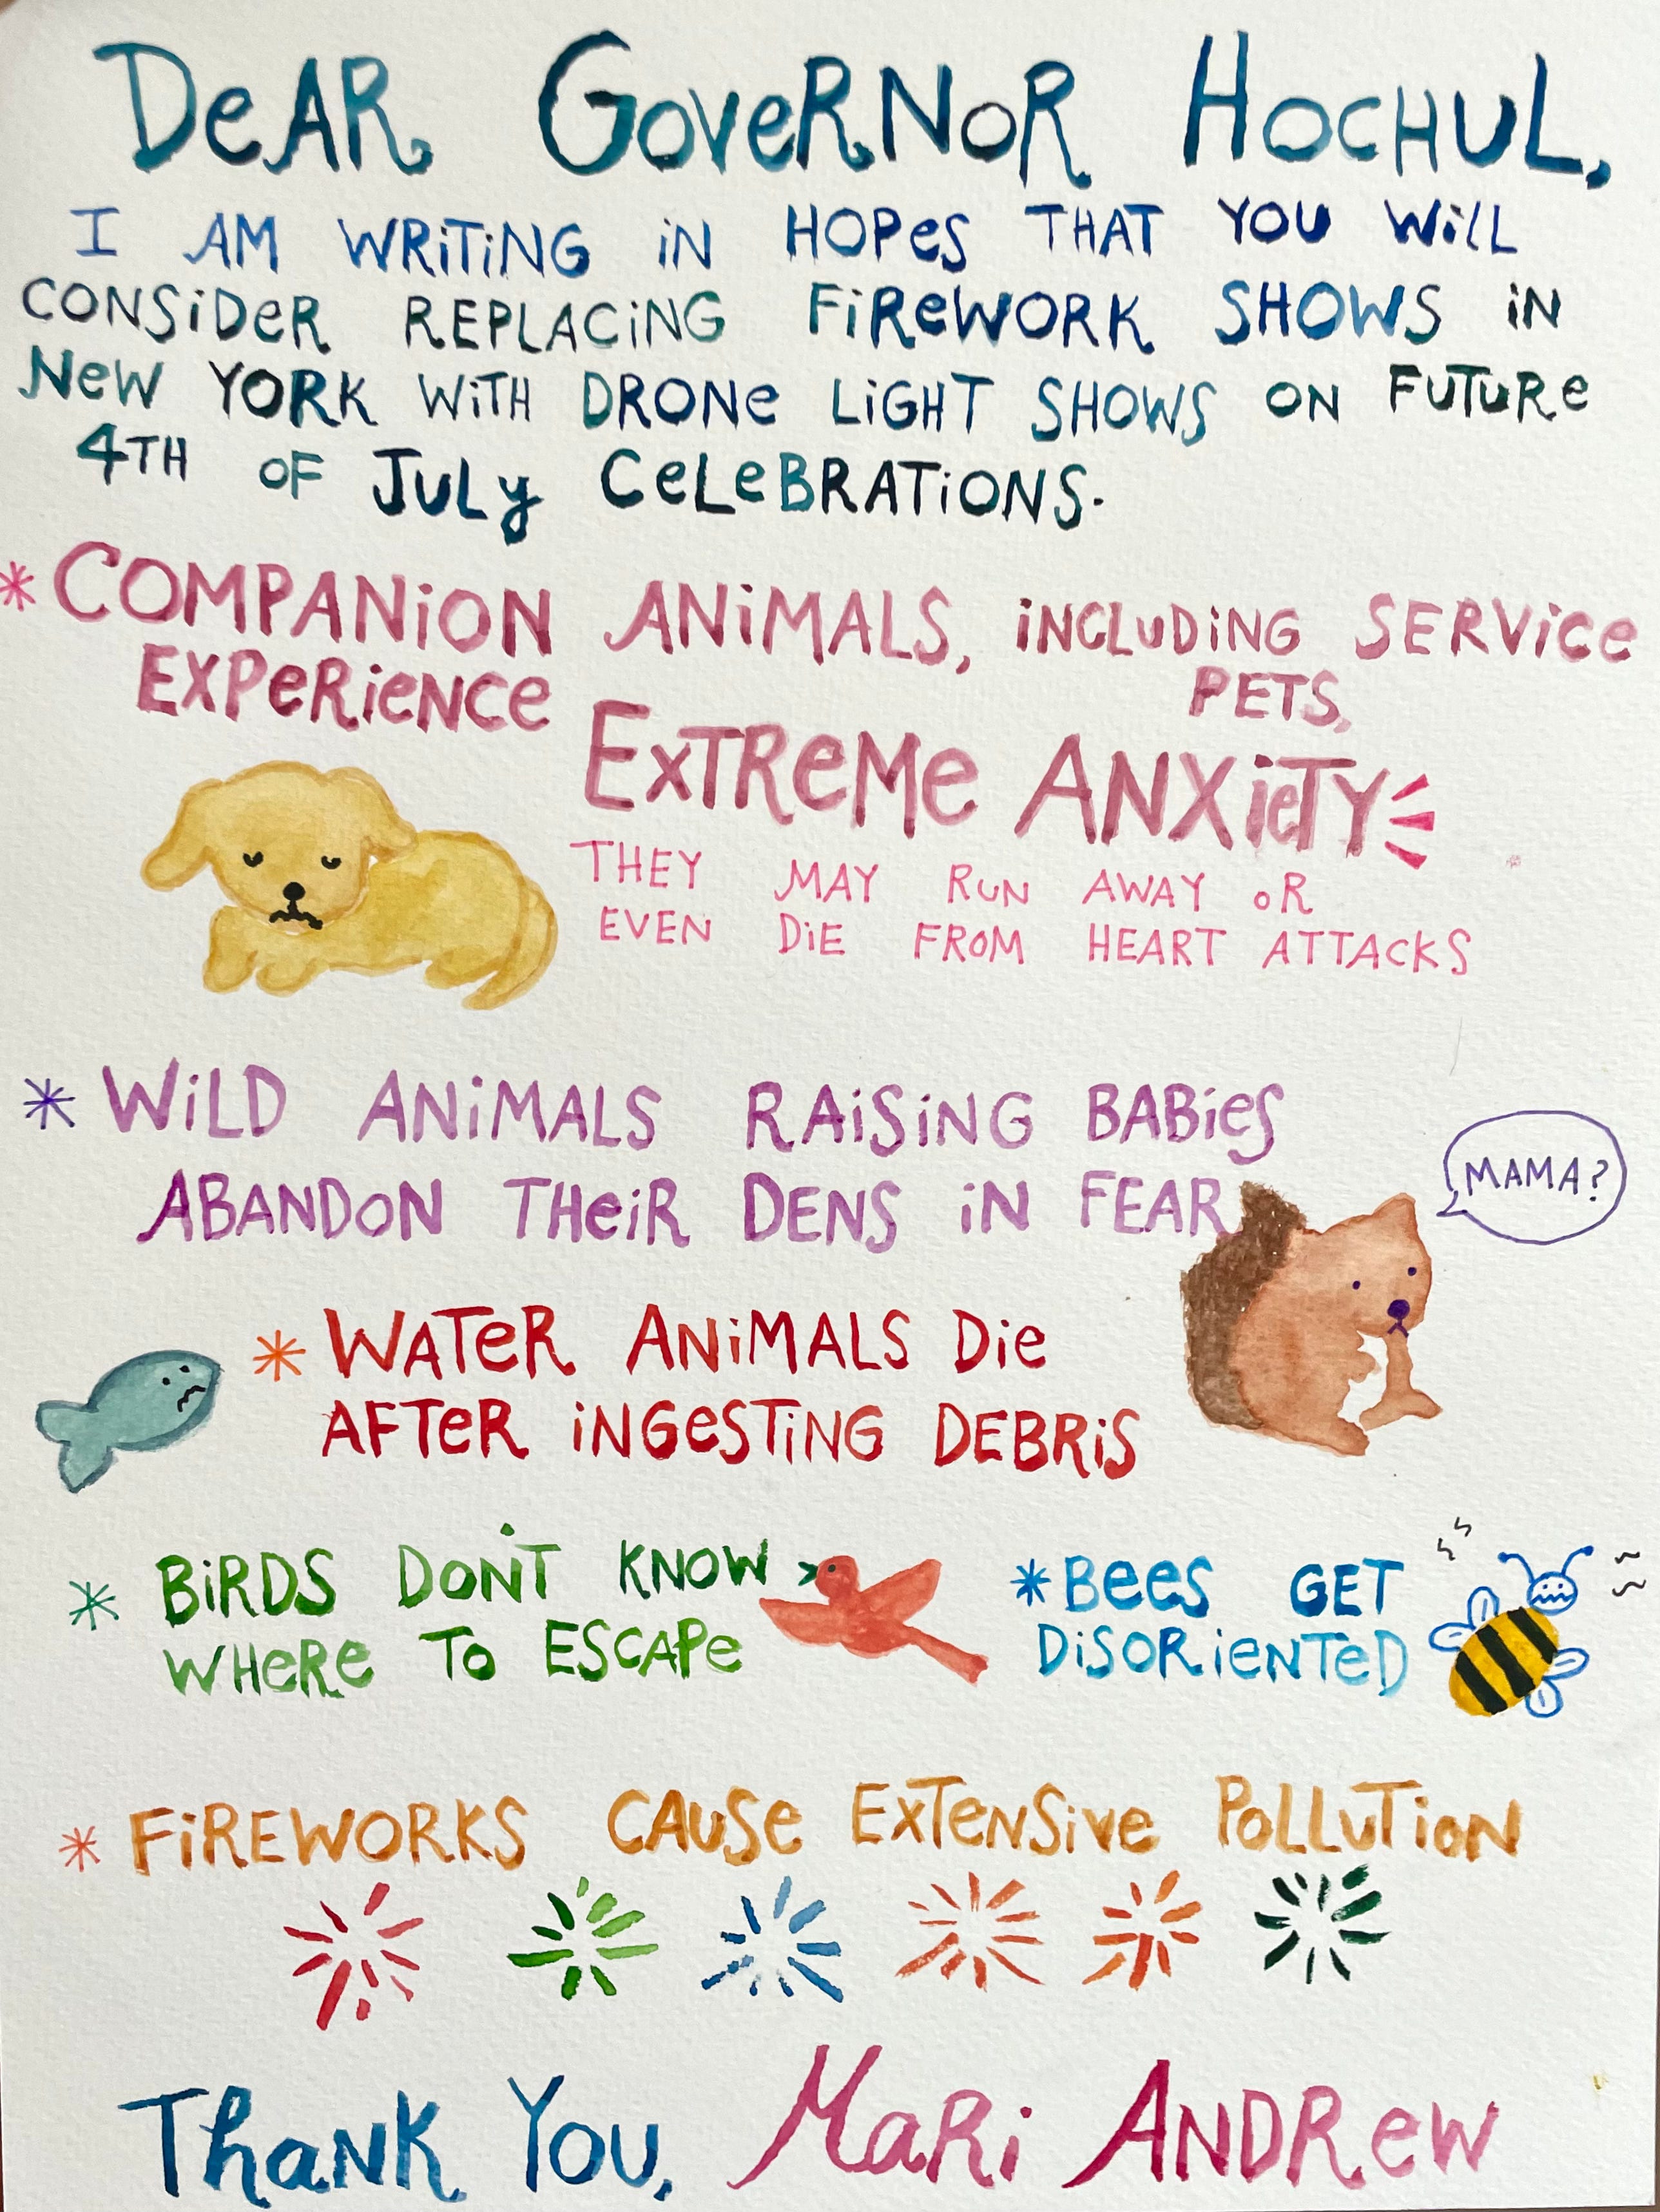 DeAR GoveRNoR HOCHUL,
I AM WRiTiNG iN HOPes THAT YOU WiLL
CONSiDeR REPLACiNG FiReWORK SHOWS iN
NeW YORK WiTH DRONe LiGHT SHOWS ON FUTURe
4TH OF JULy CeLeBRATiONS.
* COMPANiON ANiMALS, iNCLUDiNG SERViCe
PETS,
EXPeRieNCe
EXTReMe ANXieTY
THEY MAY RUN AWAY oR
EVEN DiE FROM HEART ATTACKS
* WiLD ANiMALS RAiSiNG BABies
ABANDON THeiR DENS iN FEAR
MAMA?
* WATeR ANiMALS Die
AFTeR iNGeSTiNG DEBRiS
* BiRDS DON'T KNOW
WHeRe To ESCAPe
* Bees GET
DiSORieNTeD
* FiREWORKS CAUSe EXTeNSive PoLLUTioN
ThaNK You, MaRi ANDRew